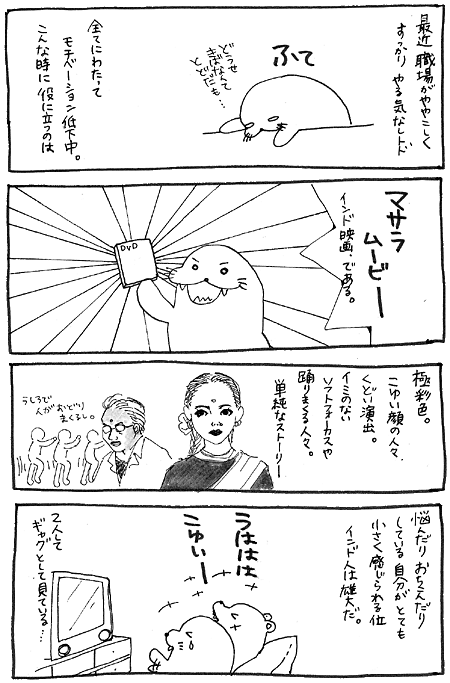 最近 職場がややこしく
すっかり やる気なしトド
ふて
どうせ
きばなんて
とどだも…
全てにわたって
モチベーション低下中。
こんな時に役に立つのは
マサラ
ムービー
インド映画、である。
DVD
極彩色。
こゆい顔の人々、
くどい演出。
イミのない
ソフトフォーカスや
踊りまくる人々。
単純なストーリー
うしろで
人がおどり
まくるし。
悩んだり おちこんだり
している 自分が とても
小さく感じられる位
インド人は雄大だ。
うははは
こゆいー
2人して
ギャグとして見ている…